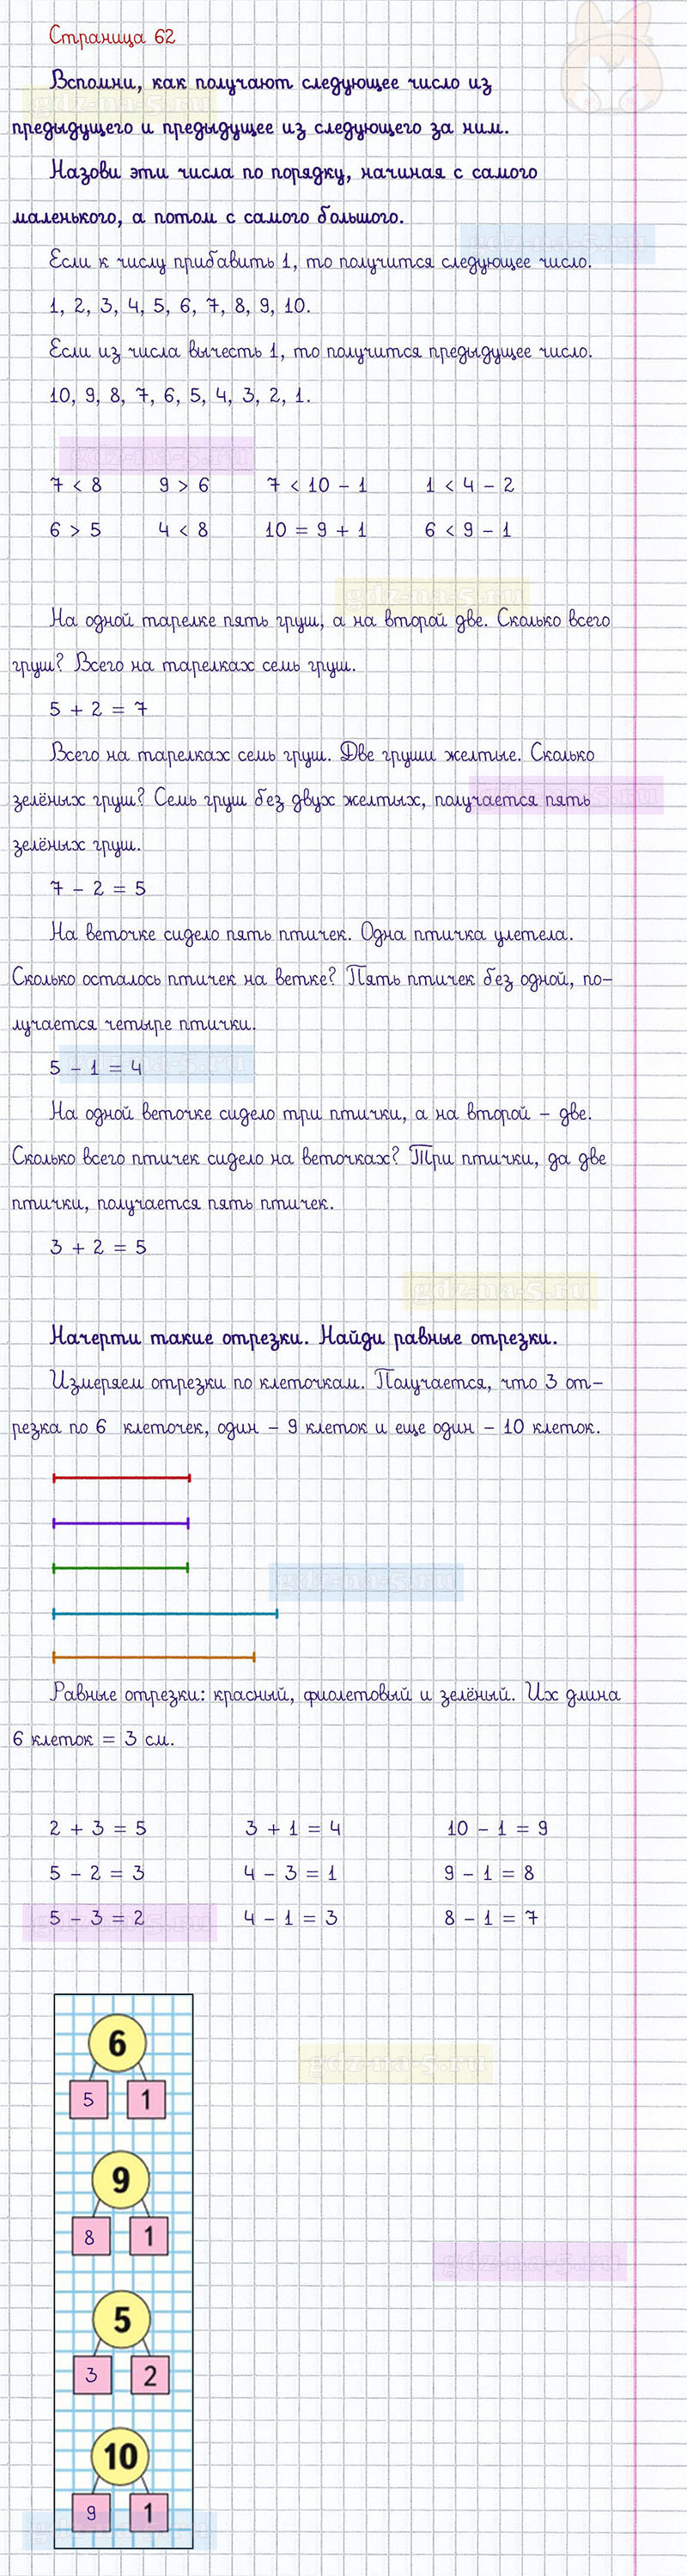 Страница 62
Вспомни, как получают следующее число из
предыдущего и предыдущее из следующего за ним.
Назови эти числа по порядку, начиная с самого
маленького, а потом с самого большого.
gdz-na-5.ru
Если к числу прибавить 1, то получится следующее число.
1, 2, 3, 4, 5, 6, 7, 8, 9, 10.
Если из числа вычесть 1, то получится предыдущее число.
10, 9, 8, 7, 6, 5, 4, 3, 2, 1.
gdz-na-5.ru
7 < 8 9 > 6 7 < 10 - 1 1 < 4 - 2
6 > 5 4 < 8 10 = 9 + 1 6 < 9 - 1
gdz-na-5.ru
На одной тарелке пять груш, а на второй две. Сколько всего
груш? Всего на тарелках семь груш.
5 + 2 = 7
Всего на тарелках семь груш. Две груши желтые. Сколько
зелёных груш? Семь груш без двух желтых, получается пять
зелёных груш.
7 - 2 = 5
На веточке сидело пять птичек. Одна птичка улетела.
Сколько осталось птичек на ветке? Пять птичек без одной, по-
лучается четыре птички.
5 - 1 = 4
На одной веточке сидело три птички, а на второй - две.
Сколько всего птичек сидело на веточках? Три птички, да две
птички, получается пять птичек.
3 + 2 = 5
gdz-na-5.ru
Начерти такие отрезки. Найди равные отрезки.
Измеряем отрезки по клеточкам. Получается, что 3 от-
резка по 6 клеточек, один - 9 клеток и еще один - 10 клеток.
gdz-na-5.ru
Равные отрезки: красный, фиолетовый и зелёный. Их длина
6 клеток = 3 см.
2 + 3 = 5 3 + 1 = 4 10 - 1 = 9
5 - 2 = 3 4 - 3 = 1 9 - 1 = 8
5 - 3 = 2 4 - 1 = 3 8 - 1 = 7
6
gdz-na-5.ru
5 1
9
8 1
gdz-na-5.ru
5
3 2
10
9 1